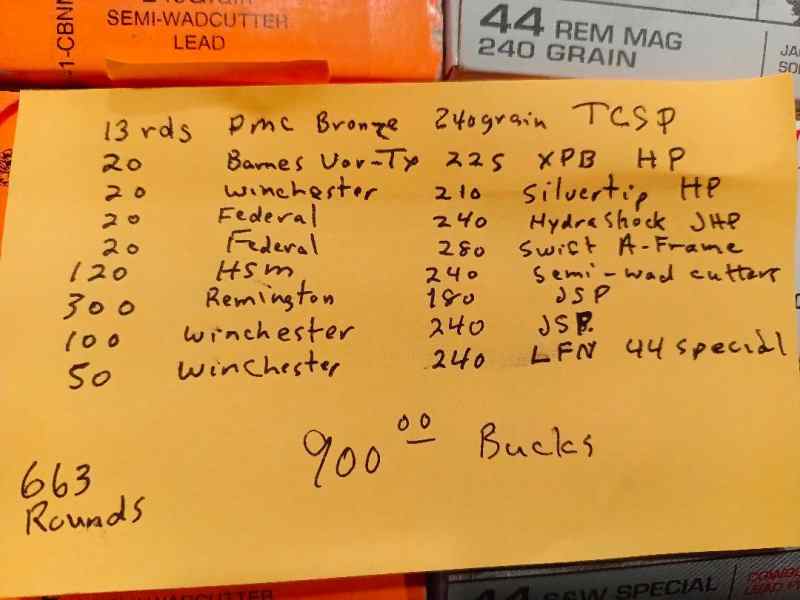 240 Grain
SEMI-WADCUTTER
LEAD
44 REM MAG
240 GRAIN
13 rds PMC Bronze 240 grain TCSP
20 Barnes Vor-Tx 225 XPB HP
20 Winchester 210 Silvertip HP
20 Federal 240 HydraShock JHP
20 Federal 280 Swift A-Frame
120 HSM 240 Semi-wad cutters
300 Remington 180 JSP
100 Winchester 240 JSP
50 Winchester 240 LFN 44 special
900.00 Bucks
663
Rounds
SEMI-WADCUTTER
44 S&W SPECIAL